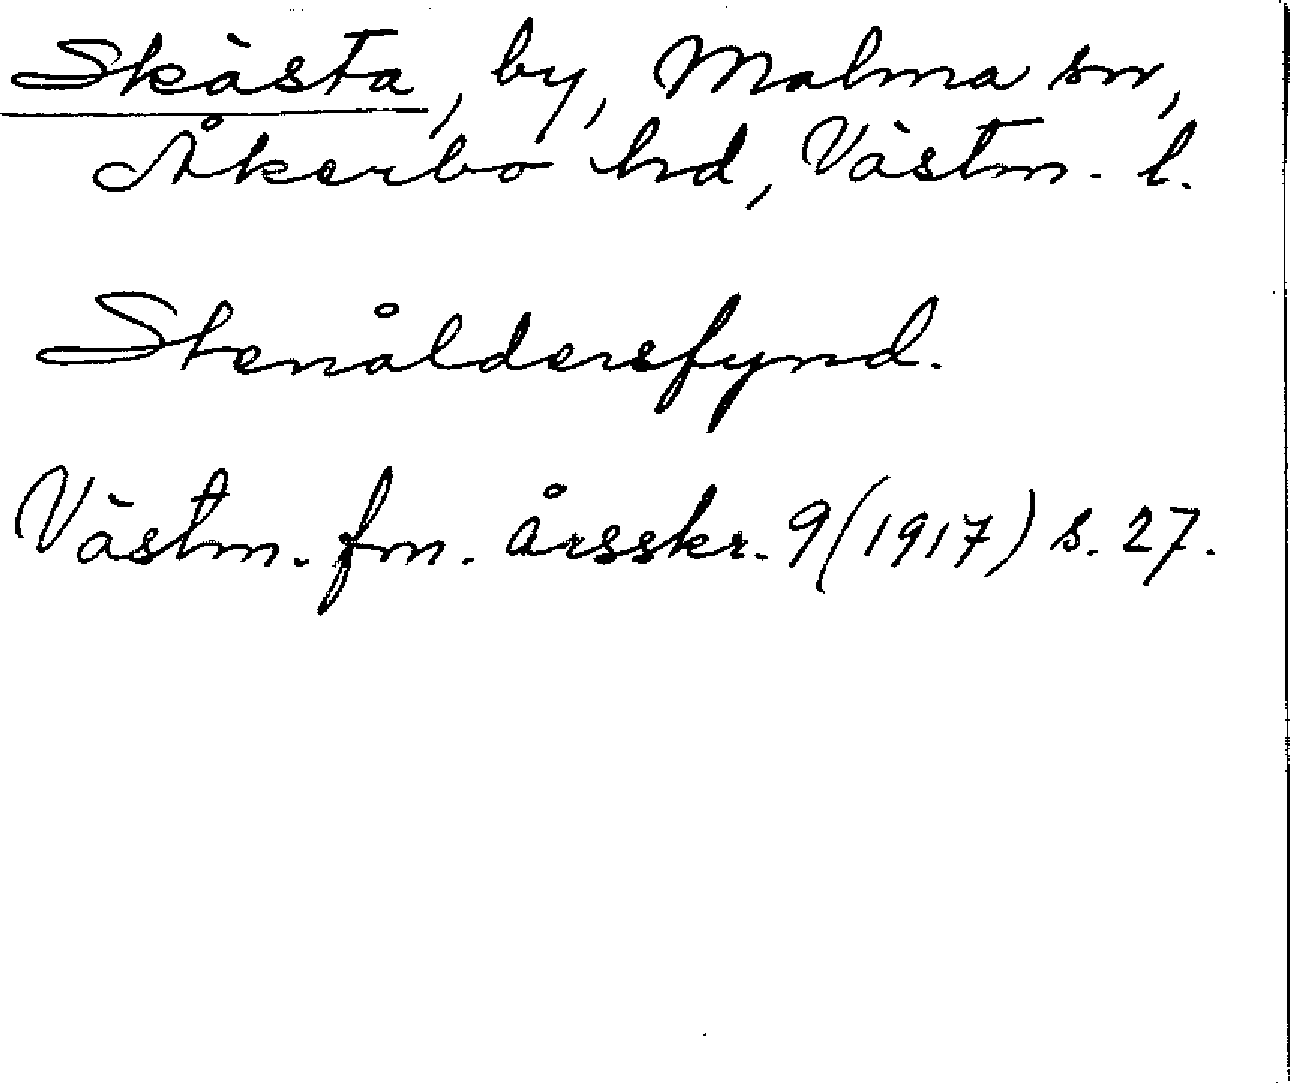 Skästa, by, Malma sn,
Åkerbo hd, Västm. l.
Stenåldersfynd.
Västm. fm. årsskr. 9 (1917) s. 27.